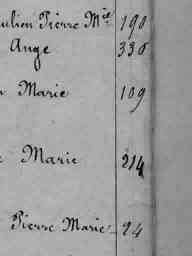 ulien Pierre Mie 190
Ange 330
Marie 109
Marie 214
Pierre Marie 24